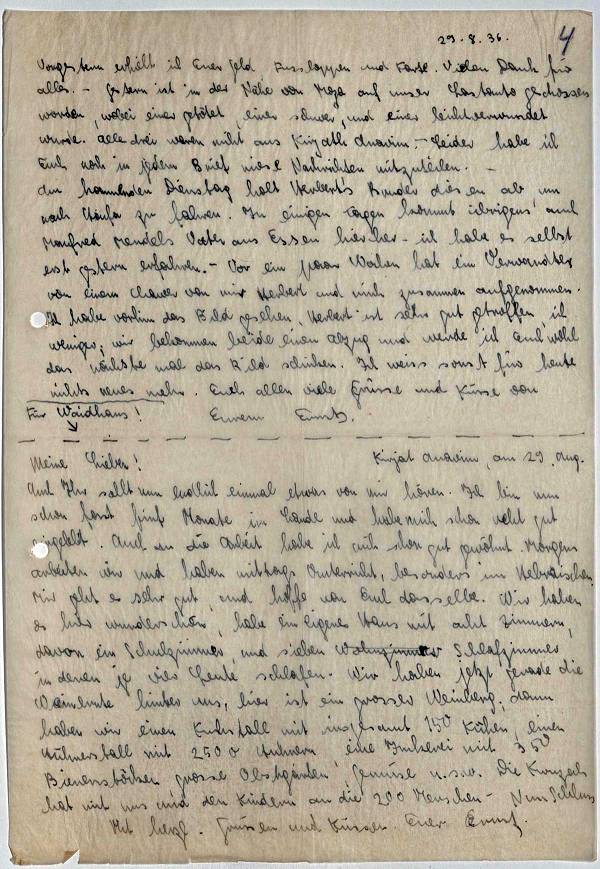 29.8.36. 4
Vorgestern erhielt ich Euer Geld Fusslappen und Farbe. Vielen Dank für
alles. – Gestern ist in der Nähe von Moza auf unser Lastauto geschossen
worden, wobei einer getötet, einer schwer, und einer leichtverwundet
wurde. Alle drei waren nicht aus Kirjath Anavim. – Leider habe ich
Euch noch in jedem Brief miese Nachrichten mitzuteilen. –
Am kommenden Dienstag holt Herbert's Bruder diesen ab um
nach Haifa zu fahren. In einigen Tagen kommt übrigens auch
Manfred Mendels Vater aus Essen hierher – ich habe es selbst
erst gestern erfahren. – Vor ein paar Wochen hat ein Verwandter
von einem Chawer von mir Herbert und mich zusammen aufgenommen.
Ich habe vorhin das Bild gesehen, Herbert ist sehr gut getroffen ich
weniger; wir bekommen beide einen Abzug und werde ich Euch wohl
das nächste mal das Bild schicken. Ich weiss sonst für heute
nichts neues mehr. Euch allen viele Grüsse und Küsse von
Für Waidhaus! Eurem Ernst.
Meine Lieben! Kirjat Anavim, am 29. Aug.
Auch Ihr sollt nun endlich einmal etwas von mir hören. Ich bin nun
schon fast fünf Monate im Lande und habe mich schon recht gut
eingelebt. Auch an die Arbeit habe ich mich schon gut gewöhnt. Morgens
arbeiten wir und haben mittags Unterricht, besonders im Hebräischen.
Mir geht es sehr gut, und hoffe von Euch dasselbe. Wir haben
es hier wunderschön, habe ein eigenes Haus mit acht Zimmern,
davon ein Schulzimmer, und sieben Schlafzimmer
in denen je vier Leute schlafen. Wir haben jetzt gerade die
Weinernte hinter uns, hier ist ein grosser Weinberg, dann
haben wir einen Kuhstall mit insgesamt 150 Kühen, einen
Hühnerstall mit 2500 Hühnern, eine Imkerei mit 350
Bienenstöcken grosse Obstgärten, Gemüse u.s.w. Die Kwuzah
hat mit uns und den Kindern an die 200 Menschen – Nun Schluss
Mit herzl. Grüssen und Küssen Euer Ernst.